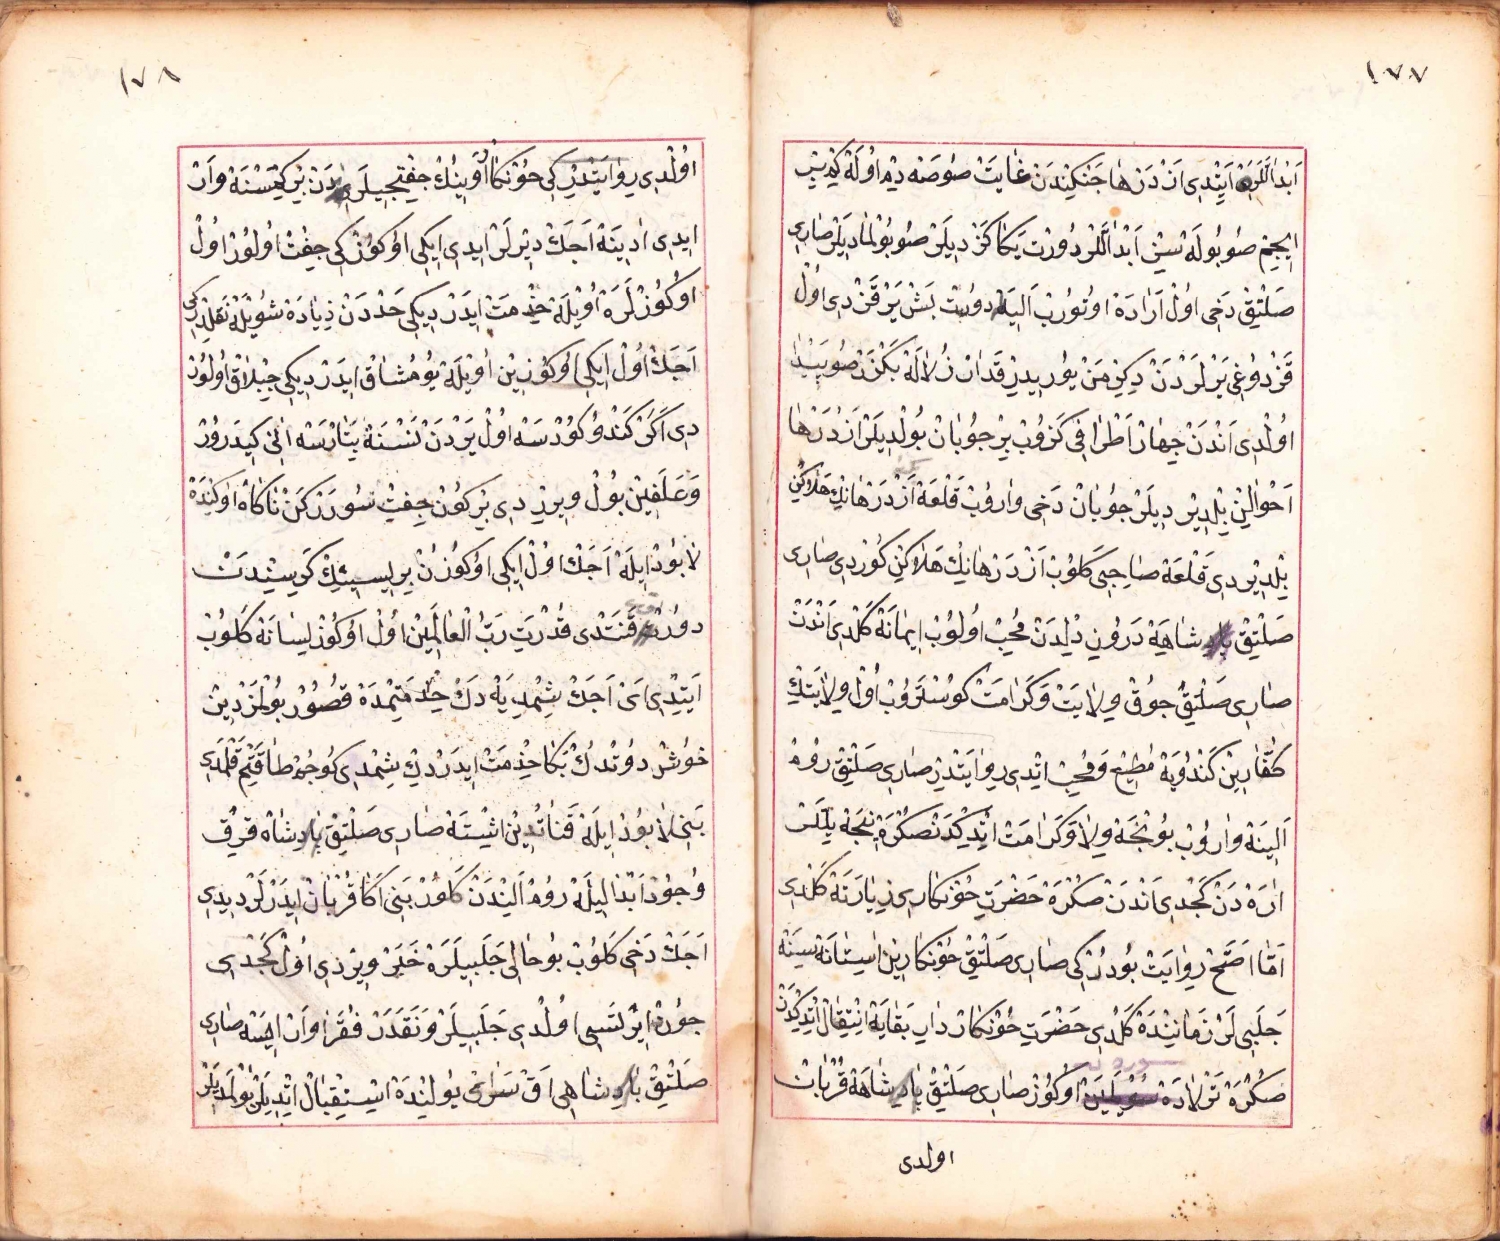 ١٧٧
ابداللره ایتدی اژدرها جنكیندن غایت صوصه دیم اوله كیدیز
ایچیم صو بوله سیز ابداللر دورت یكا كزدیلر صو بولمادیلر صاری
صلتیق دخی اول اراده اوتوروب الیله دورت بش یر قزدی اول
قزدوغی یرلردن دكیرمن یوریدیر قدار زلاله بكزر صو پیدا
اولدی اندن چهار اطرافی كزوب بر چوبان بولدیلر اژدرها
احوالین بلدیردیلر چوبان دخی واروب قلعه اژدرهانك هلاكین
بلدیردی قلعه صاحبی كلوب اژدرهانك هلاكین كوردی صاری
صلتیق پادشاهیه درون دلدن محب اولوب ایمانه كلدی اندن
صاری صلتیق چوق ولایت و كرامت كوستروب اول ولایتك
كفارین كندویه مطیع و محب اتدی روایتدر صاری صلتیق روم
الینه واروب بونجه ولا و كرامت اتدیكدن صكره نیجه ییللر
اره دن كچدی اندن صكره حضرت خونكاری زیارته كلدی
اما اصح روایت بودر كی صاری صلتیق خونكارین استانه سینه
چلبی لر زمانینده كلدی حضرت خونكار دار بقایه انتقال اتدیكدن
صكره تزلاده سویلین اوكوز صاری صلتیق پادشاهه قربان
اولدی
١٧٨
اولدی روایتدر كی خونكار اوینك چفتجیلریدن بر كیمسنه وار
ایدی ادینه اجك دیرلر ایدی ایكی اوكوز كی چفت اولور اول
اوكوزلره اویله خذمت ایدردیكی حددن زیاده شویله نقلدر كی
اجك اول ایكی اوكوزین اویله یومشاق ایدردیكی چبلاق اولور
دی اكر كندو كودرسه اول یردن نسنه یتارسه انی كیدرور
و علفین بول ویرردی بر كون چفت سورركن ناكاه اوكنده
لابود ایله اجك اول ایكی اوكوزن بریسینك كریسندن
دورتـ قنتدی قدرت رب العالمین اول اوكوز لسانه كلوب
ایتدی ای اجك شمدیه دك خذمتمده قصور بولمزدین
خوش دوتدك بكا خذمت ایدردك شمدی كوجم طاقتم قلمدی
بنی لابود ایله قناتدین اشیته صاری صلتیق پادشاه قرق
وجود ابدالیله روم الیندن كلور بنی اكا قربان ایدرلر دیدی
اجك دخی كلوب بو حالی چلبیلره خبر ویردی اول كجدی
چون ایرتسی اولدی چلبیلر و نقدر فقرا وار ایسه صاری
صلتیق پادشاهی اق سرای یولینده استقبال اتدیلر بولمدیلر